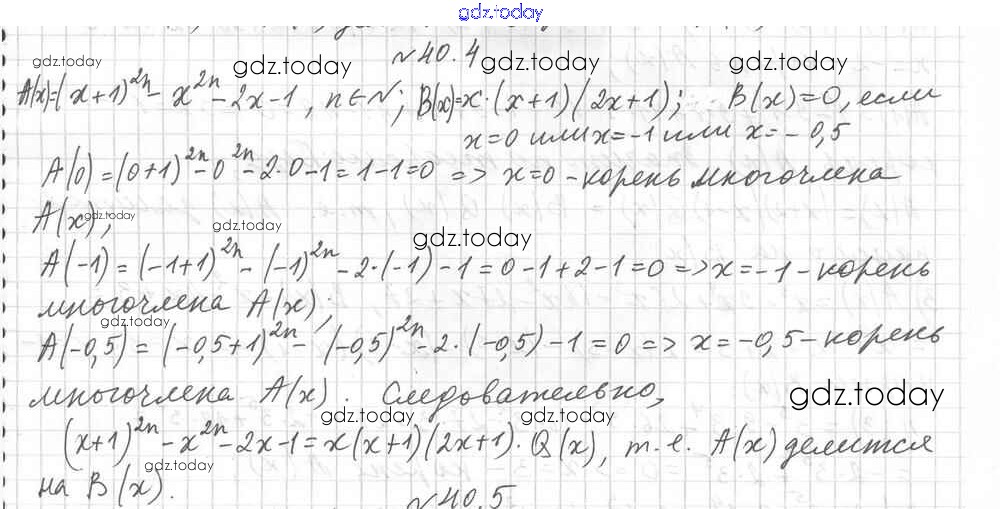 gdz.today
№40.4
gdz.today gdz.today gdz.today
A(x)=(x+1)^2n - x^2n - 2x-1, n∈N; B(x)=x·(x+1)(2x+1); B(x)=0, если
x=0 или x=-1 или x=-0,5
A(0)=(0+1)^2n - 0^2n - 2·0-1=1-1=0 => x=0 - корень многочлена
gdz.today
A(x); gdz.today
gdz.today
A(-1)=(-1+1)^2n - (-1)^2n - 2·(-1)-1=0-1+2-1=0 => x=-1 - корень
многочлена A(x);
gdz.today
A(-0,5)=(-0,5+1)^2n - (-0,5)^2n - 2·(-0,5)-1=0 => x=-0,5 - корень
многочлена A(x). Следовательно, gdz.today
gdz.today gdz.today
(x+1)^2n - x^2n - 2x-1=x(x+1)(2x+1)·Q(x), т.е. A(x) делится
gdz.today
на B(x).
№40.5